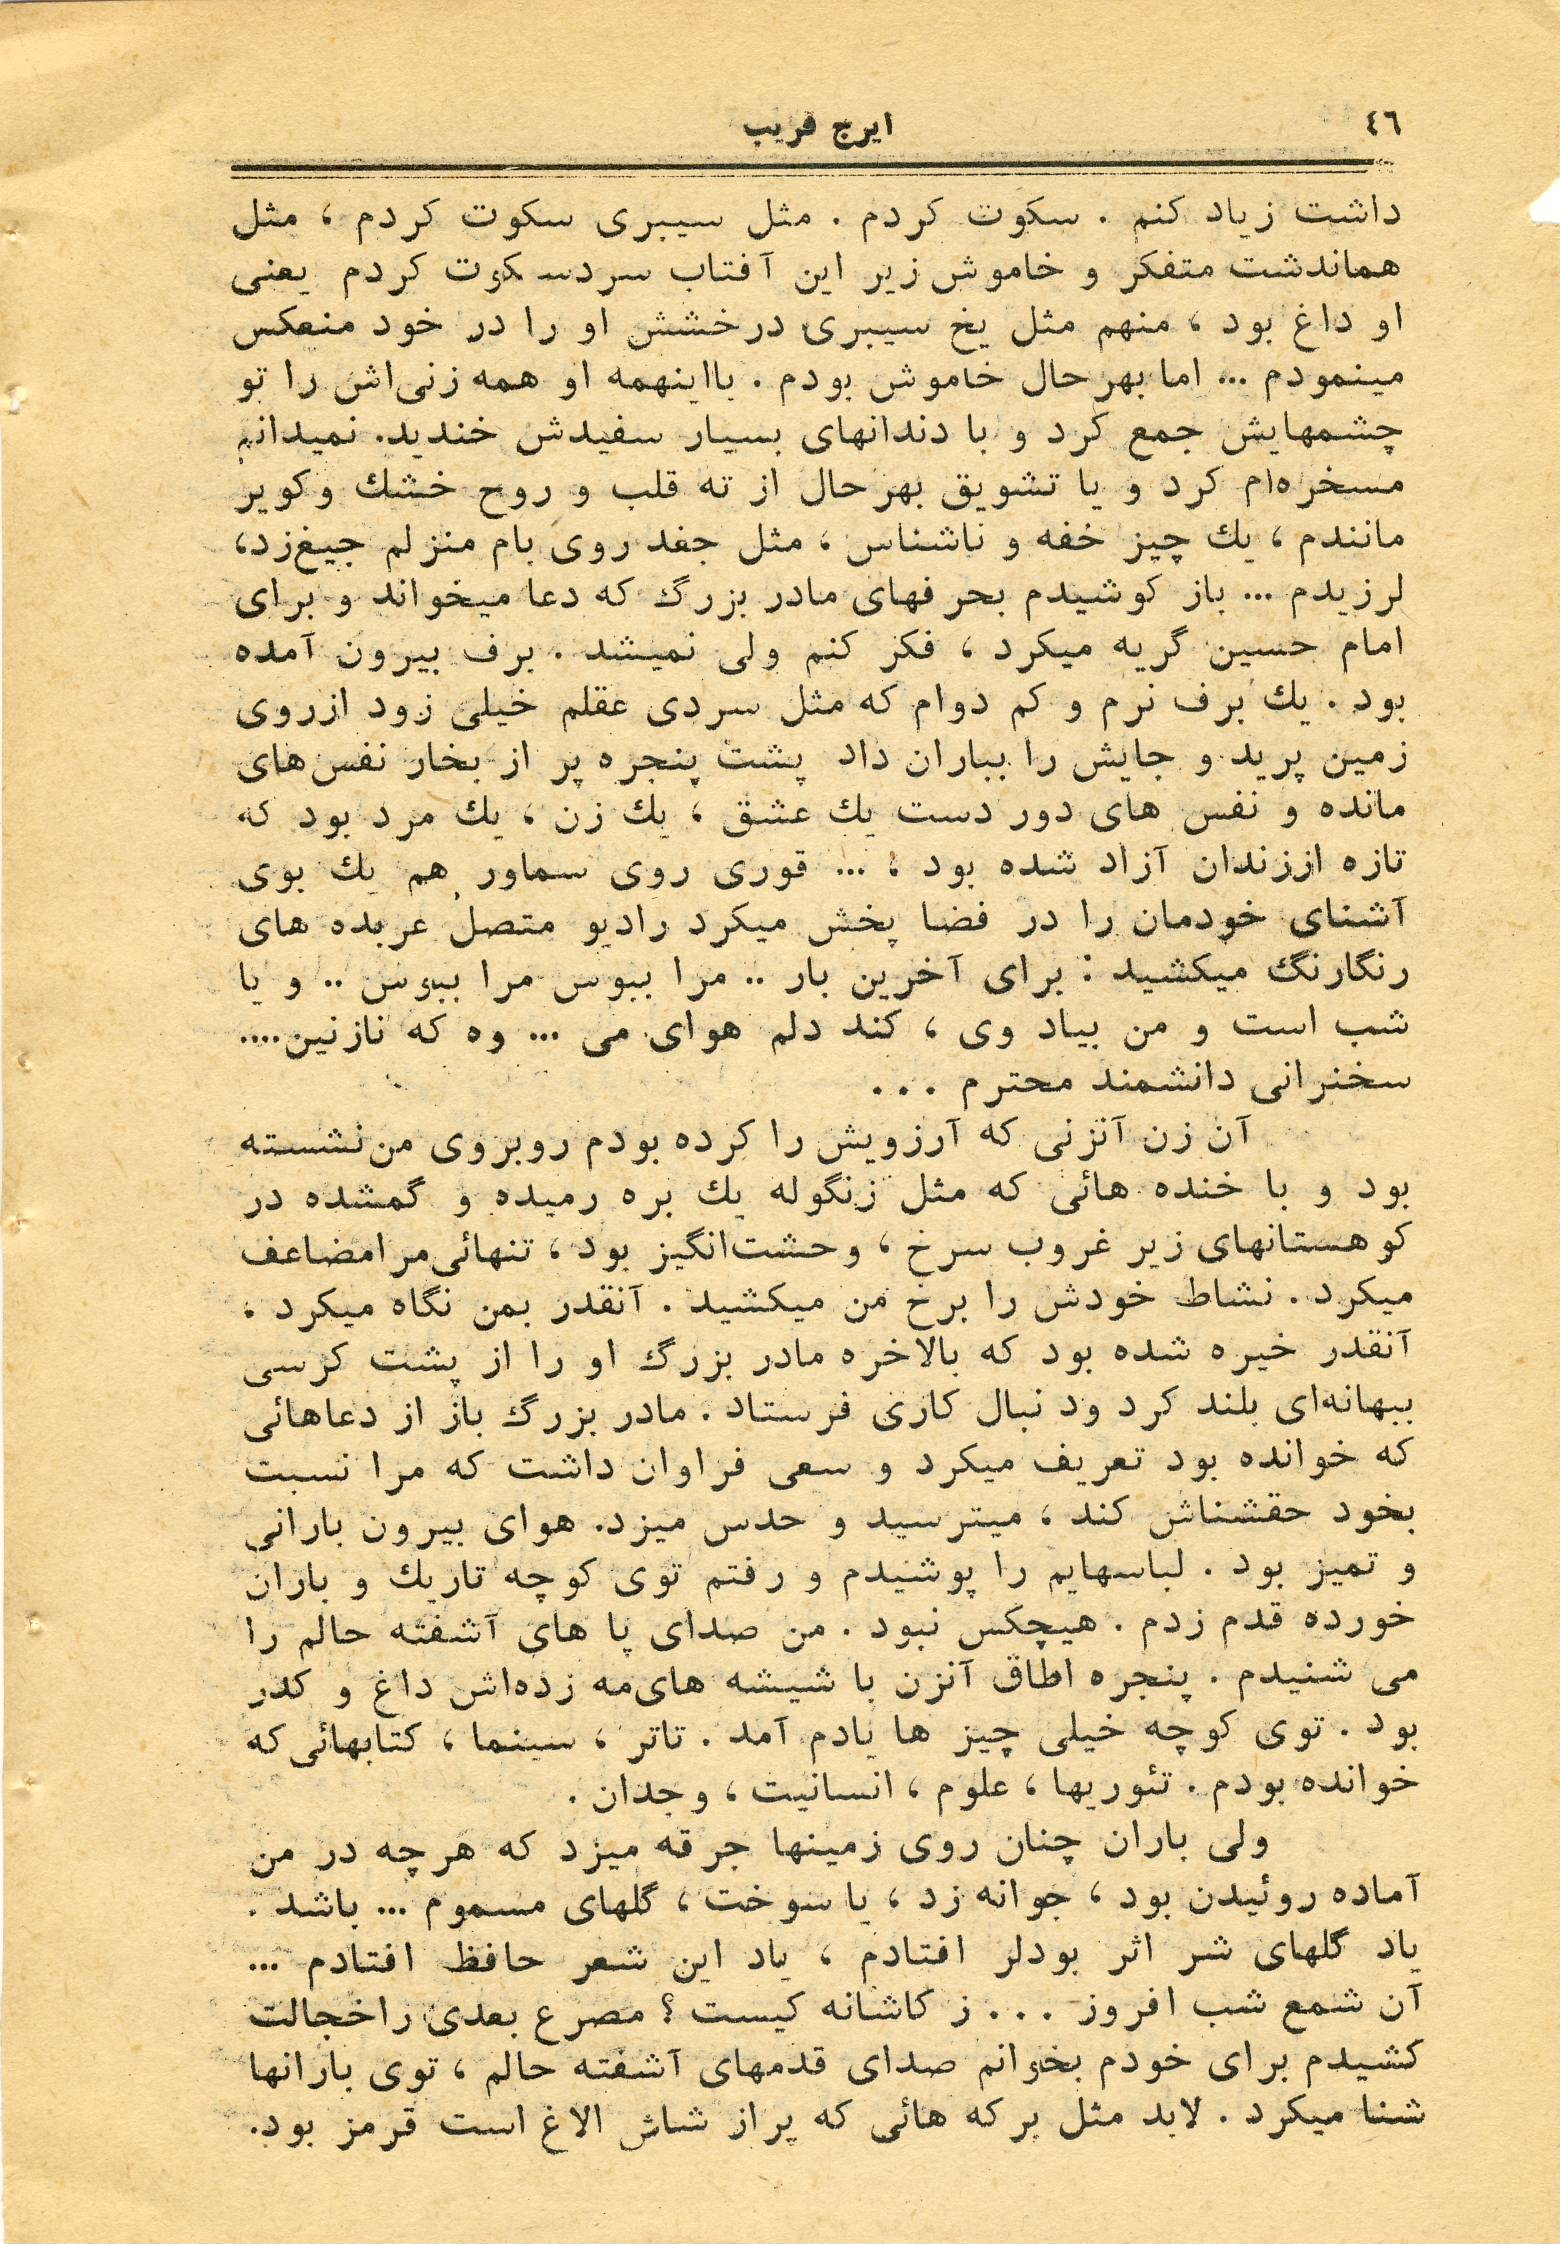 ٤٦
ایرج قریب
داشت زیاد کنم . سکوت کردم . مثل سیبری سکوت کردم ، مثل
هماندشت متفکر و خاموش زیر این آفتاب سردسکوت کردم یعنی
او داغ بود ، منهم مثل یخ سیبری درخشش او را در خود منعکس
مینمودم ... اما بهرحال خاموش بودم . بااینهمه او همه زنی‌اش را تو
چشمهایش جمع کرد و با دندانهای بسیار سفیدش خندید. نمیدانم
مسخره‌ام کرد و یا تشویق بهرحال از ته قلب و روح خشك وکویر
مانندم ، یك چیز خفه و ناشناس ، مثل جغد روی بام منزلم جیغ‌زد،
لرزیدم ... باز کوشیدم بحرفهای مادر بزرگ که دعا میخواند و برای
امام حسین گریه میکرد ، فکر کنم ولی نمیشد . برف بیرون آمده
بود . یك برف نرم و کم دوام که مثل سردی عقلم خیلی زود ازروی
زمین پرید و جایش را بباران داد پشت پنجره پر از بخار نفس‌های
مانده و نفس های دور دست یك عشق ، یك زن ، یك مرد بود که
تازه اززندان آزاد شده بود ، ... قوری روی سماور هم یك بوی
آشنای خودمان را در فضا پخش میکرد رادیو متصل عربده های
رنگارنگ میکشید : برای آخرین بار .. مرا ببوس مرا ببوس .. و یا
شب است و من بیاد وی ، کند دلم هوای می ... وه که نازنین....
سخنرانی دانشمند محترم . . .
آن زن آنزنی که آرزویش را کرده بودم روبروی من‌نشسته
بود و با خنده هائی که مثل زنگوله یك بره رمیده و گمشده در
کوهستانهای زیر غروب سرخ ، وحشت‌انگیز بود ، تنهائی‌مرامضاعف
میکرد . نشاط خودش را برخ من میکشید . آنقدر بمن نگاه میکرد ،
آنقدر خیره شده بود که بالاخره مادر بزرگ او را از پشت کرسی
ببهانه‌ای بلند کرد ودنبال کاری فرستاد . مادر بزرگ باز از دعاهائی
که خوانده بود تعریف میکرد و سعی فراوان داشت که مرا نسبت
بخود حقشناش کند ، میترسید و حدس میزد. هوای بیرون بارانی
و تمیز بود . لباسهایم را پوشیدم و رفتم توی کوچه تاریك و باران
خورده قدم زدم . هیچکس نبود . من صدای پا های آشفته حالم را
می شنیدم . پنجره اطاق آنزن با شیشه های‌مه زده‌اش داغ و کدر
بود . توی کوچه خیلی چیز ها یادم آمد . تاتر ، سینما ، کتابهائی‌که
خوانده بودم . تئوریها ، علوم ، انسانیت ، وجدان .
ولی باران چنان روی زمینها جرقه میزد که هرچه در من
آماده روئیدن بود ، جوانه زد ، یا سوخت ، گلهای مسموم ... باشد .
یاد گلهای شر اثر بودلر افتادم ، یاد این شعر حافظ افتادم ...
آن شمع شب افروز . . . ز کاشانه کیست ؟ مصرع بعدی راخجالت
کشیدم برای خودم بخوانم صدای قدمهای آشفته حالم ، توی بارانها
شنا میکرد . لابد مثل برکه هائی که پراز شاش الاغ است قرمز بود.